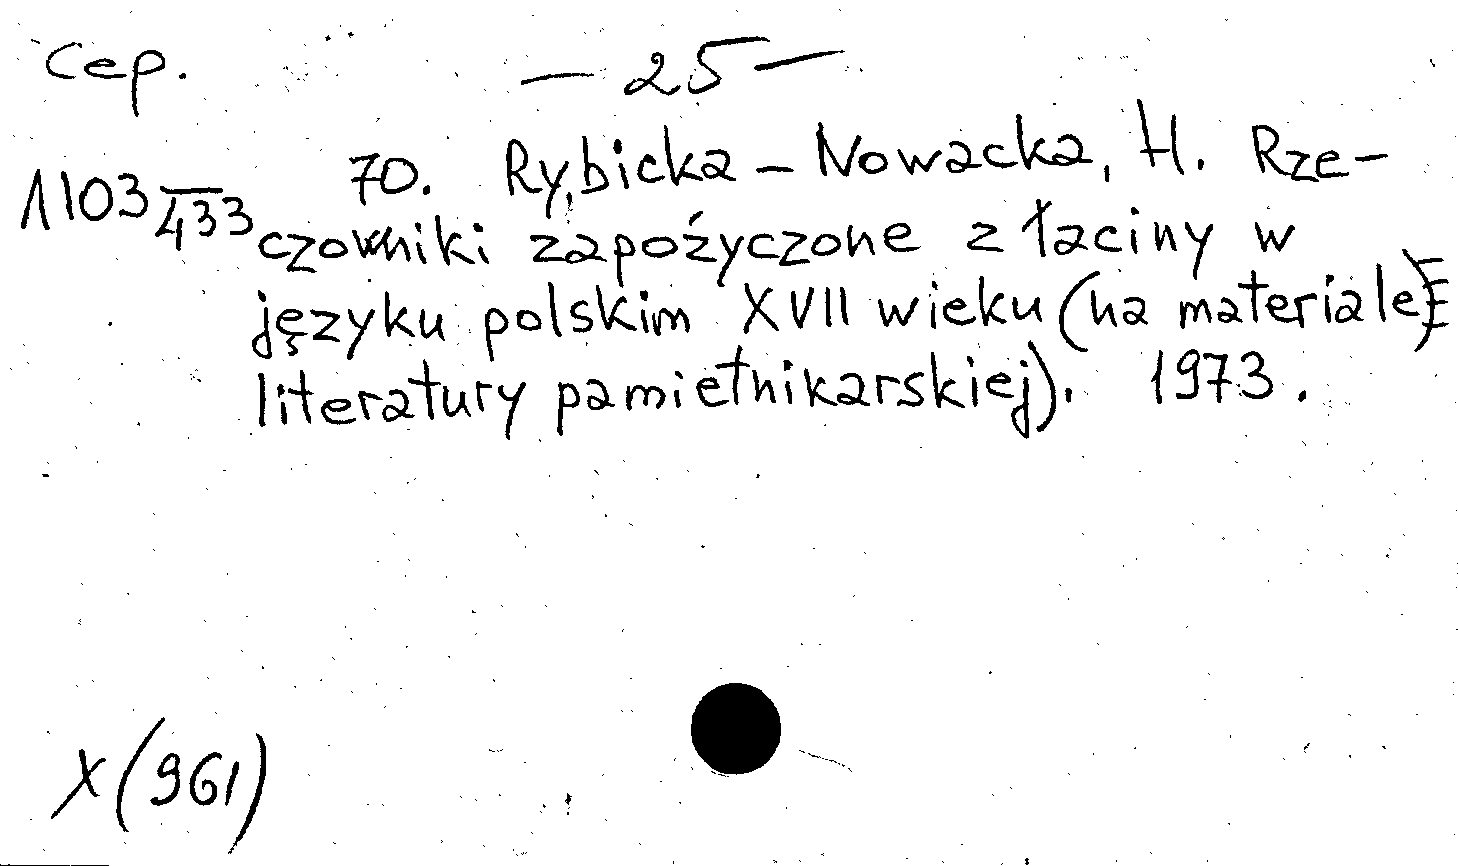 Сер. — 25 —
1103/433 70. Rybicka - Nowacka, H. Rze-
czowniki zapożyczone z łaciny w
języku polskim XVII wieku (na materiale
literatury pamiętnikarskiej). 1973.
X(961)